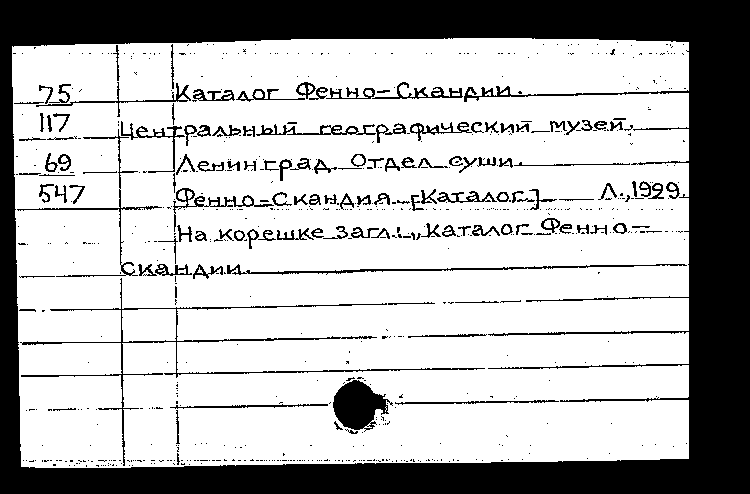 75 Каталог Фенно-Скандии.
117 Центральный географический музей.
69 Ленинград. Отдел суши.
547 Фенно-Скандия. [Каталог.] Л., 1929.
На корешке загл.: „Каталог Фенно-
скандии.